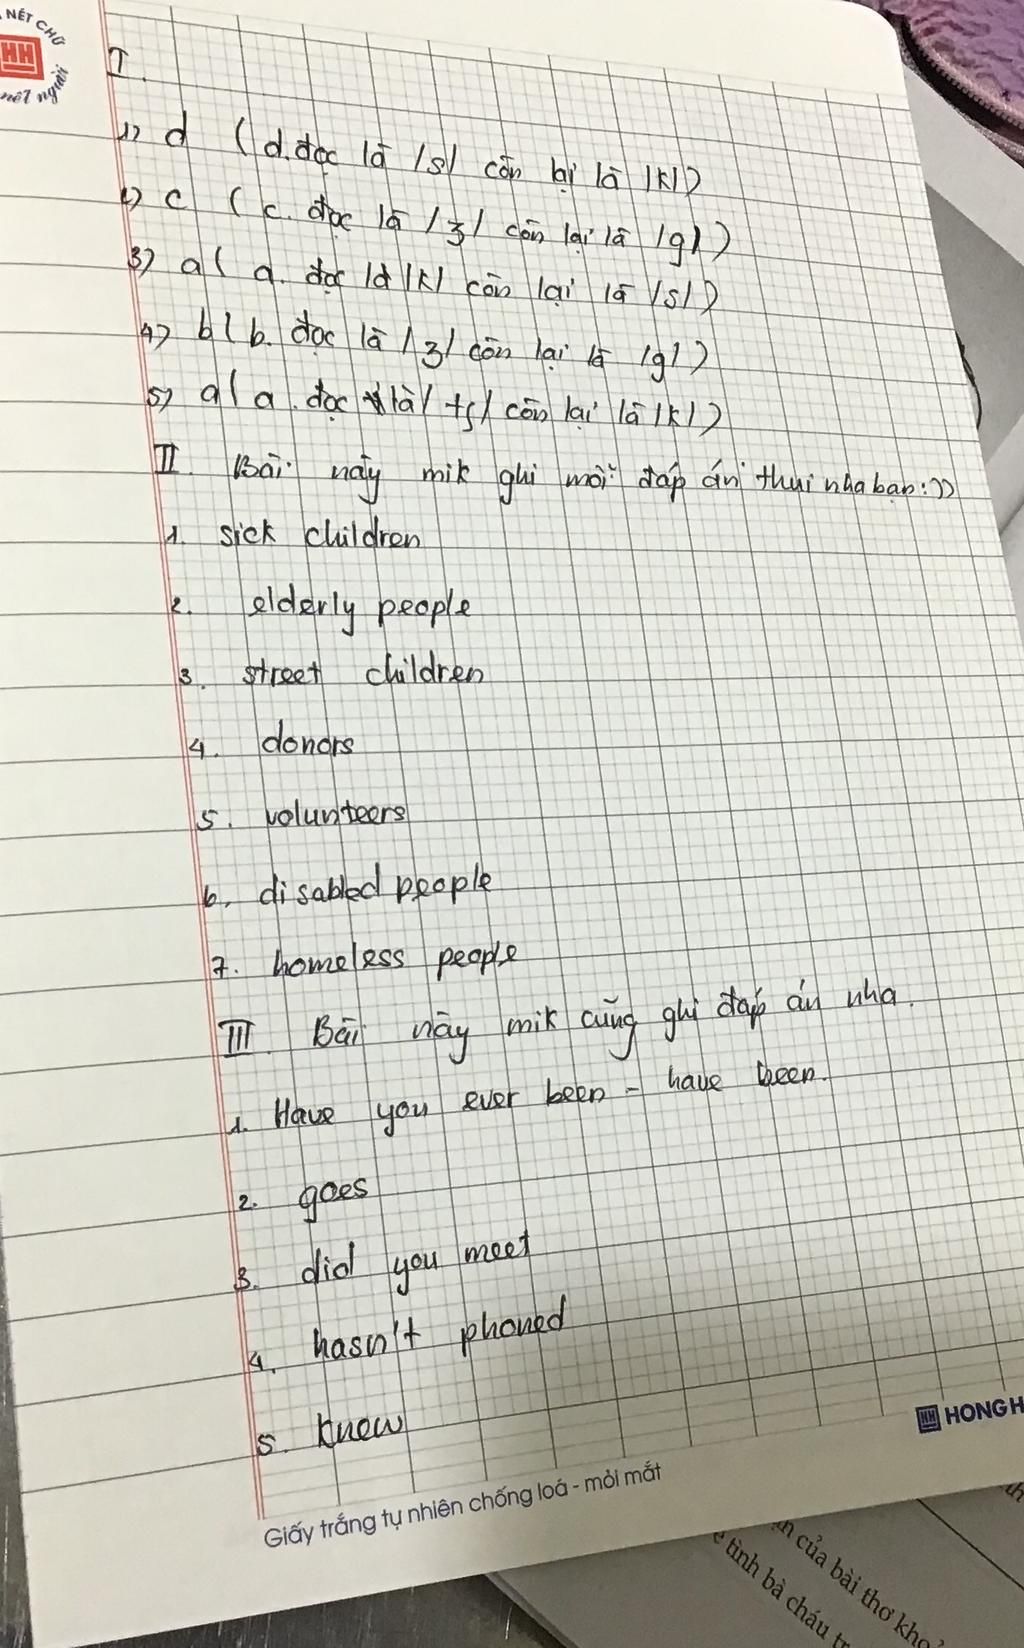 NÉT CHỮ
HH
nết người
I.
1) d ( d. đọc là /s/ còn lại là /k/)
2) c ( c. đọc là /ʒ/ còn lại là /g/)
3) a ( a. đọc là /k/ còn lại là /s/)
4) b ( b. đọc là /ʒ/ còn lại là /g/)
5) a ( a. đọc là / tʃ/ còn lại là /k/)
II. Bài này mik ghi mỗi đáp án thui nha bạn:))
1. sick children
2. elderly people
3. street children
4. donors
5. volunteers
6. disabled people
7. homeless people
III. Bài này mik cũng ghi đáp án nha.
1. Have you ever been - have been.
2. goes
3. did you meet
4. hasn't phoned
5. knew
HH HONG H
Giấy trắng tự nhiên chống loá - mỏi mắt
của bài thơ
tình bà cháu